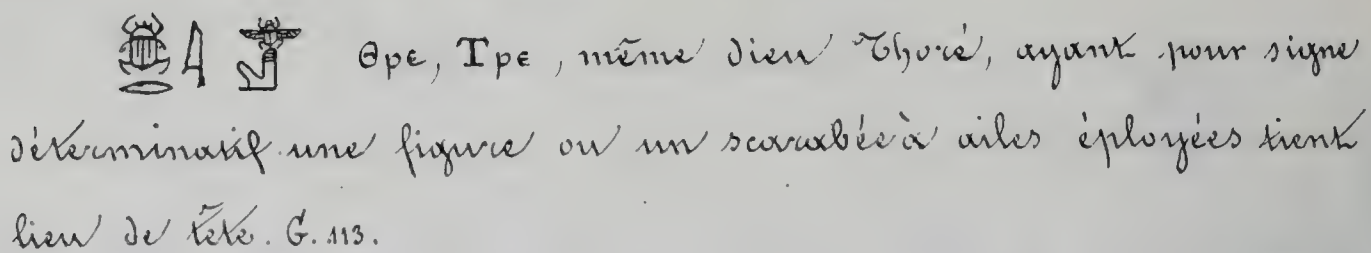 𓆣𓂋𓇋 Ⲑⲣⲉ, Ⲧⲣⲉ, même dieu Thoré, ayant pour signe
déterminatif une figure ou un scarabée à ailes éployées tient
lieu de tête. G. 113.